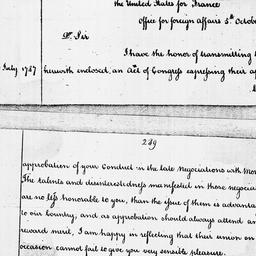 the United States for France
Office for foreign affairs 5th October
Dr. Sir
I have the honor of transmitting
July 1787 herewith enclosed, an act of Congress expressing their ap
289
approbation of your Conduct in the late Negociations with Mon
The talents and disinterestedness manifested in those negocia
are no less honorable to you, than the issue of them is advanta
to our Country, and as approbation should always attend an
reward merit, I am happy in reflecting that their union on
occasion cannot fail to give you very sensible pleasure.